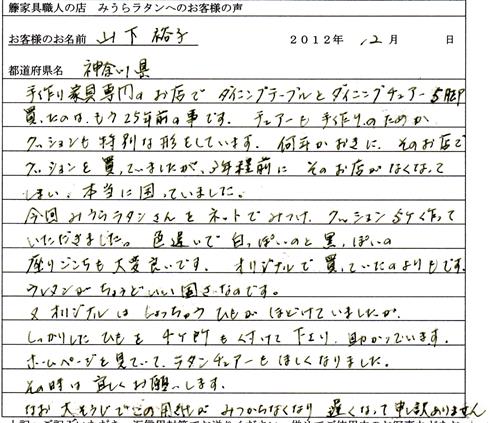 籐家具職人の店　みうらラタンへのお客様の声
お客様のお名前　山下 裕子　２０１２年　12月　　日
都道府県名　神奈川県
手作り家具専門のお店で ダイニングテーブルとダイニングチェアー5脚
買ったのは、もう25年前の事です。チェアーも手作りのためか
クッションも特別な形をしています。何年かおきに、そのお店で
クッションを買っていましたが、3年程前に そのお店がなくなって
しまい、本当に困っていました。
今回みうらラタンさんをネットでみつけ、クッション5ケ作って
いただきました。色違いで白っぽいのと黒っぽいの
座りごこちも大変良いです。オリジナルで買っていたのよりもです。
ウレタンがちょうどいい固さなのです。
又オリジナルはしょっちゅうひもがほどけていましたが、
しっかりしたひもを4ケ所も付けて下さり、助かっています。
ホームページを見ていて、ラタンチェアーもほしくなりました。
その時は宜しくお願いします。
なお大そうじでこの用紙がみつからなくなり遅くなって申し訳ありません